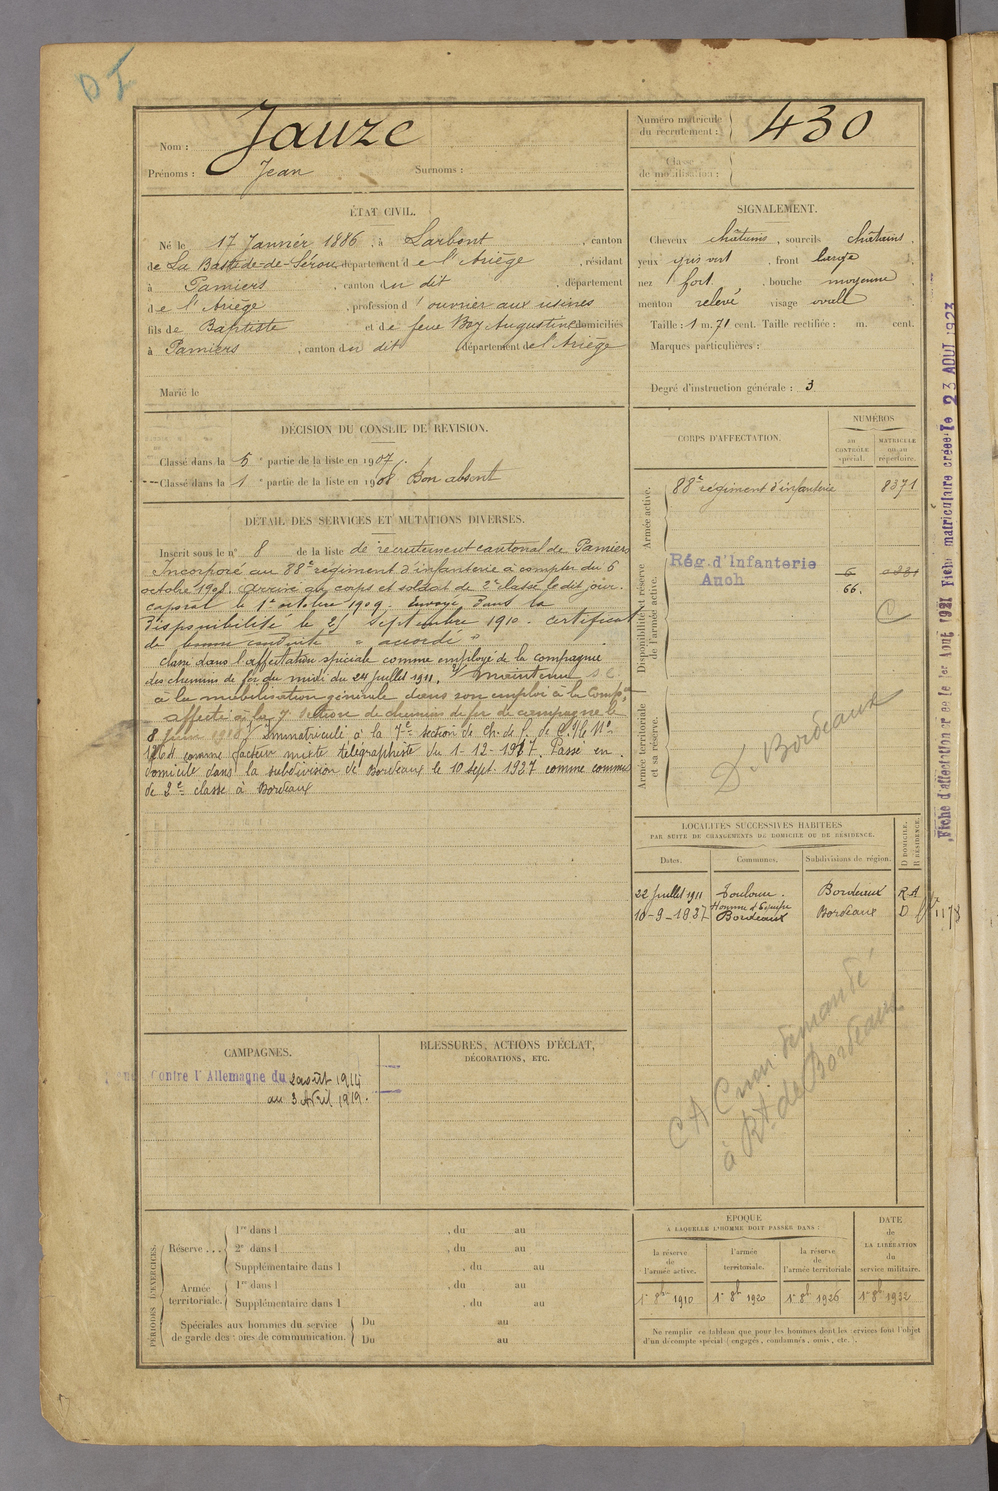 D I
Nom : Jauze
Prénoms : Jean Surnoms :
Numéro matricule du recrutement : 430
Classe de mobilisation :
ÉTAT CIVIL.
Né le 17 Janvier 1886, à Larbont, canton
de La Bastide-de-Sérou, département de l'Ariège, résidant
à Pamiers, canton du dit, département
de l'Ariège, profession d'ouvrier aux usines
fils de Baptiste et de feue Boy Augustine domiciliés
à Pamiers, canton du dit département de l'Ariège
Marié le
SIGNALEMENT.
Cheveux châtains, sourcils châtains,
yeux gris vert, front large,
nez fort, bouche moyenne
menton relevé visage ovale
Taille : 1 m. 71 cent. Taille rectifiée : m. cent.
Marques particulières :
Degré d'instruction générale : 3
DÉCISION DU CONSEIL DE RÉVISION.
Classé dans la 5e partie de la liste en 1907.
Classé dans la 1e partie de la liste en 1908 Bon absent
DÉTAIL DES SERVICES ET MUTATIONS DIVERSES.
Inscrit sous le n° 8 de la liste de recrutement cantonal de Pamiers
Incorporé au 88e régiment d'infanterie à compter du 6
octobre 1908. arrivé au corps et soldat de 2e classe le dit jour.
caporal le 1er octobre 1909. Envoyé dans la
disponibilité le 25 septembre 1910. certificat
de bonne conduite "accordé"
classé dans l'affectation spéciale comme employé de la compagnie
des chemins de fer du midi du 24 juillet 1911. Maintenu
à la mobilisation générale dans son emploi à la Compie
affecté à la 7 Section de chemins de fer de campagne le
8 Juin 1918. Immatriculé à la 7e section de ch. de f. de C. s/le No
1864 comme facteur mixte télégraphiste du 1-12-1917. Passé en
domicile dans la subdivision de Bordeaux le 10 sept. 1927 comme commis
de 2e classe à Bordeaux
CORPS D'AFFECTATION.
NUMÉROS
AU CONTRÔLE spécial.
MATRICULE OU AU répertoire.
Armée active.
88e régiment d'infanterie 8371
Disponibilité et réserve de l'armée active.
Rég. d'Infanterie
Auch
66.
C
Armée territoriale et sa réserve.
D. Bordeaux
LOCALITÉS SUCCESSIVES HABITÉES
PAR SUITE DE CHANGEMENTS DE DOMICILE OU DE RÉSIDENCE.
Dates. Communes. Subdivisions de région. D DOMICILE. R RÉSIDENCE.
22 Juillet 1911 Toulouse. Bordeaux R A
Homme d'équipe
10-9-1927 Bordeaux Bordeaux D
CA C non demandé
à Rt de Bordeaux
CAMPAGNES.
Contre l'Allemagne du 2 août 1914
au 3 Avril 1919.
BLESSURES, ACTIONS D'ÉCLAT,
DÉCORATIONS, ETC.
PÉRIODES D'EXERCICES.
Réserve . . .
1re dans l , du au
2e dans l , du au
Supplémentaire dans l , du au
Armée territoriale.
1re dans l , du au
Supplémentaire dans l , du au
Spéciales aux hommes du service de garde des voies de communication.
Du au
Du au
ÉPOQUE
A LAQUELLE L'HOMME DOIT PASSER DANS :
la réserve de l'armée active.
l'armée territoriale.
la réserve de l'armée territoriale
DATE de LA LIBÉRATION du service militaire.
1er 8bre 1910 1er 8bre 1920 1er 8bre 1926 1er 8bre 1932
Ne remplir ce tableau que pour les hommes dont les services font l'objet
d'un décompte spécial (engagés, condamnés, omis, etc.).
Fiche matriculaire créée le 23 AOUT 1923